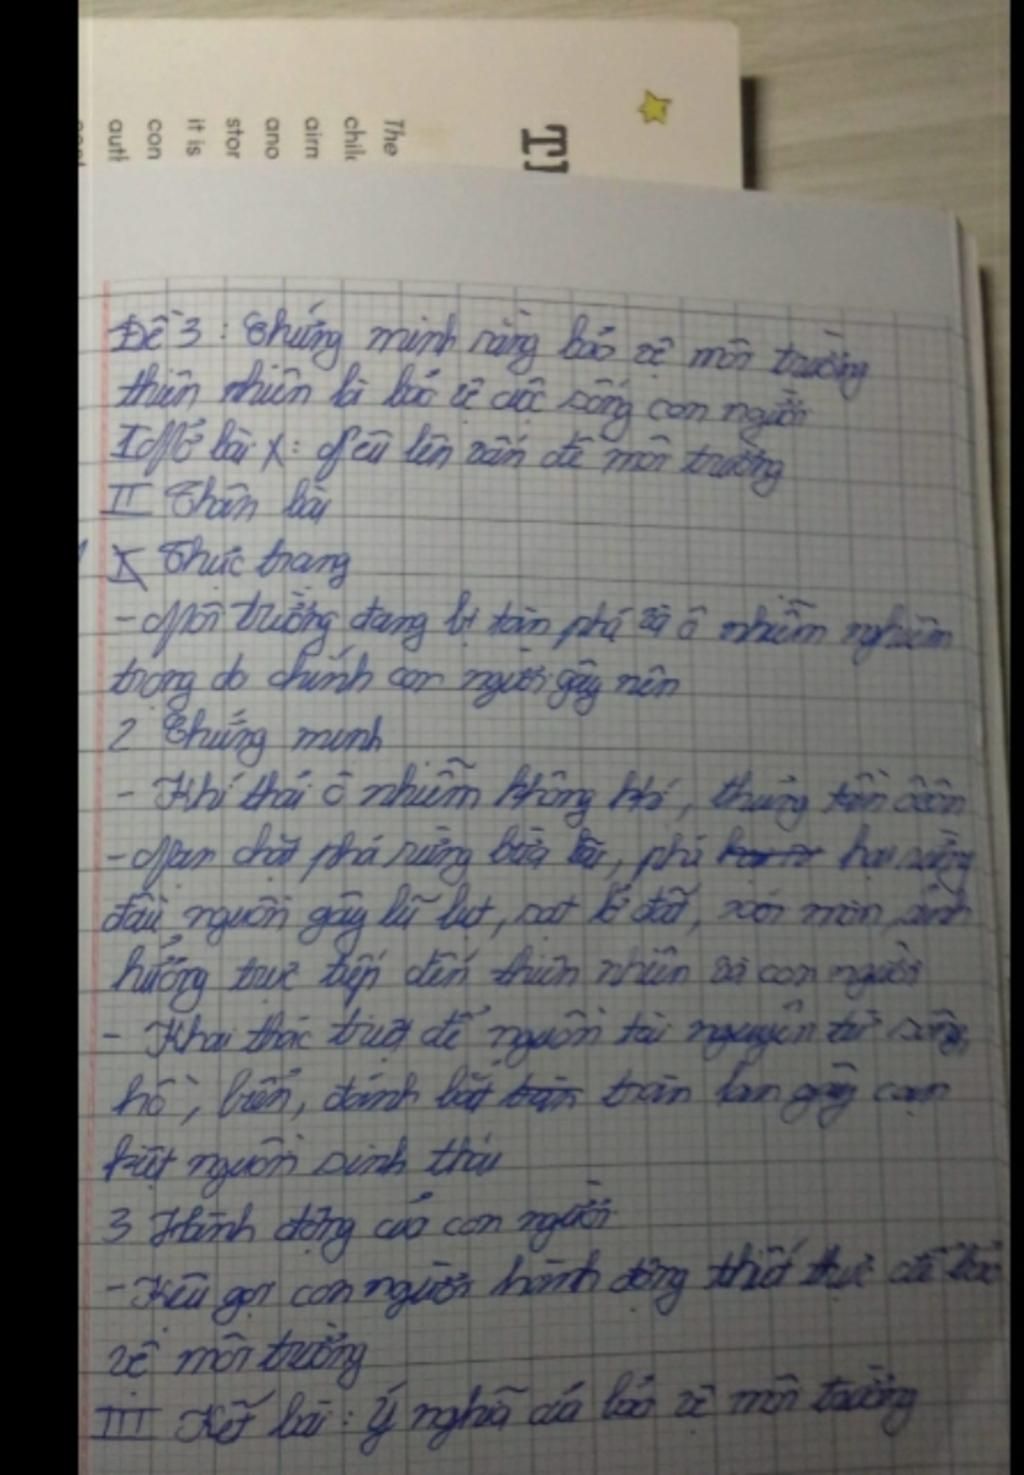 The
chil
airn
ano
stor
it is
con
auth
Đề 3: Chứng minh rằng bảo vệ môi trường
thiên nhiên là bảo vệ cuộc sống con người
I Mở bài: Nêu lên vấn đề môi trường
II Thân bài
1 Thực trạng
- Môi trường đang bị tàn phá và ô nhiễm nghiêm
trọng do chính con người gây nên
2 Chứng minh
- Khí thải ô nhiễm không khí, thủng tần ôzôn
- Nạn chặt phá rừng bừa bãi, phá hại rừng
đầu nguồn gây lũ lụt, sạt lở đất, xói mòn, ảnh
hưởng trực tiếp đến thiên nhiên và con người
- Khai thác triệt để nguồn tài nguyên từ sông,
hồ, biển, đánh bắt tràn lan gây cạn
kiệt nguồn sinh thái
3 Hành động của con người
- Kêu gọi con người hành động thiết thực để bảo
vệ môi trường
III Kết bài: Ý nghĩa của bảo vệ môi trường